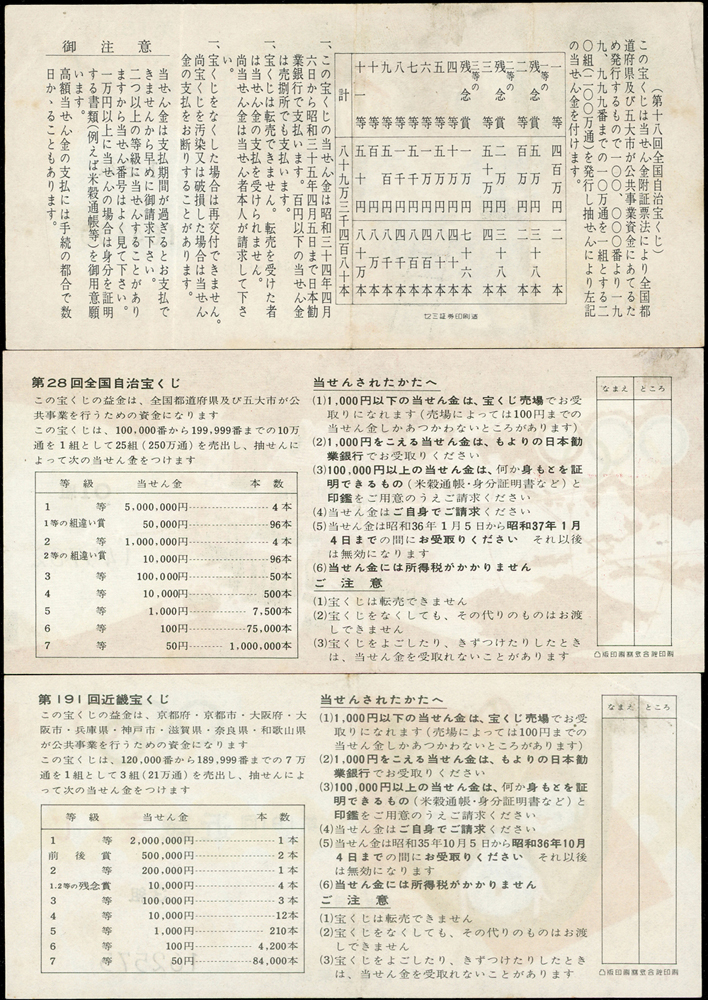 （第十八回全国自治宝くじ）
この宝くじは当せん金附証票法により全国都
道府県及び五大市が公共事業資金にあてるた
め発行するもので一〇〇、〇〇〇番より一九
九、九九九番までの一〇万通を一組とする二
〇組（二〇〇万通）を発行し抽せんにより左記
の当せん金を付けます。
一等 四百万円 二本
一等の残念賞 五万円 三十八本
二等
二等の残念賞
三等 五十万円 四本
三等の残念賞
四等
五等
六等
七等
八等
九等
十等
十一等 五十円
計 八十九万三千四百八十本
一、この宝くじの当せん金は昭和三十四年四月
六日から昭和三十五年四月五日まで日本勧
業銀行で支払います。百円以下の当せん金
は売捌所でも支払います。
一、宝くじは転売できません。転売を受けた者
は当せん金の支払を受けられません。
尚当せん金は当せん者本人が請求して下さ
い。
一、宝くじをなくした場合は再交付できません。
尚宝くじを汚染又は破損した場合は当せん
金の支払をお断りすることがあります。
御注意
当せん金は支払期間が過ぎるとお支払で
きませんから早めに御請求下さい。
二つ以上の等級に当せんすることがあり
ますから当せん番号はよく見て下さい。
一万円以上に当せんの場合は身分を証明
する書類（例えば米穀通帳等）を御用意願
います。
高額当せん金の支払には手続の都合で数
日かゝることもあります。
第28回全国自治宝くじ
この宝くじの益金は、全国都道府県及び五大市が公
共事業を行うための資金になります
この宝くじは、100,000番から199,999番までの10万
通を1組として25組(250万通)を売出し、抽せんに
よって次の当せん金をつけます
等級 当せん金 本数
1等 5,000,000円 4本
1等の組違い賞 50,000円 96本
2等 1,000,000円 4本
2等の組違い賞 10,000円 96本
3等 100,000円 50本
4等 10,000円 500本
5等 1,000円 7,500本
6等 100円 75,000本
7等 50円 1,000,000本
当せんされたかたへ
(1)1,000円以下の当せん金は、宝くじ売場でお受
取りになれます(売場によっては100円までの
当せん金しかあつかわないところがあります)
(2)1,000円をこえる当せん金は、もよりの日本勧
業銀行でお受取りください
(3)100,000円以上の当せん金は、何か身もとを証
明できるもの(米穀通帳・身分証明書など)と
印鑑をご用意のうえご請求ください
(4)当せん金はご自身でご請求ください
(5)当せん金は昭和36年1月5日から昭和37年1月
4日までの間にお受取りください それ以後
は無効になります
(6)当せん金には所得税がかかりません
ご注意
(1)宝くじは転売できません
(2)宝くじをなくしても、その代りのものはお渡
しできません
(3)宝くじをよごしたり、きずつけたりしたとき
は、当せん金を受取れないことがあります
なまえ ところ
凸版印刷株式会社印刷
第191回近畿宝くじ
この宝くじの益金は、京都府・京都市・大阪府・大
阪市・兵庫県・神戸市・滋賀県・奈良県・和歌山県
が公共事業を行うための資金になります
この宝くじは、120,000番から189,999番までの7万
通を1組として3組(21万通)を売出し、抽せんによ
って次の当せん金をつけます
等級 当せん金 本数
1等 2,000,000円 1本
前後賞 500,000円 2本
2等 200,000円 1本
1.2等の残念賞 10,000円 4本
3等 100,000円 3本
4等 10,000円 12本
5等 1,000円 210本
6等 100円 4,200本
7等 50円 84,000本
当せんされたかたへ
(1)1,000円以下の当せん金は、宝くじ売場でお受
取りになれます(売場によっては100円までの
当せん金しかあつかわないところがあります)
(2)1,000円をこえる当せん金は、もよりの日本勧
業銀行でお受取りください
(3)100,000円以上の当せん金は、何か身もとを証
明できるもの(米穀通帳・身分証明書など)と
印鑑をご用意のうえご請求ください
(4)当せん金はご自身でご請求ください
(5)当せん金は昭和35年10月5日から昭和36年10月
4日までの間にお受取りください それ以後
は無効になります
(6)当せん金には所得税がかかりません
ご注意
(1)宝くじは転売できません
(2)宝くじをなくしても、その代りのものはお渡
しできません
(3)宝くじをよごしたり、きずつけたりしたとき
は、当せん金を受取れないことがあります
なまえ ところ
凸版印刷株式会社印刷